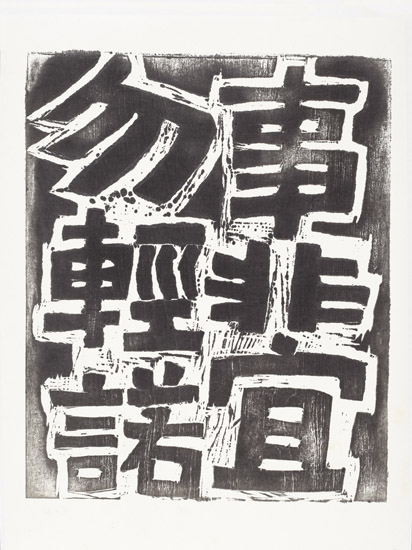 事非宜
勿輕諾